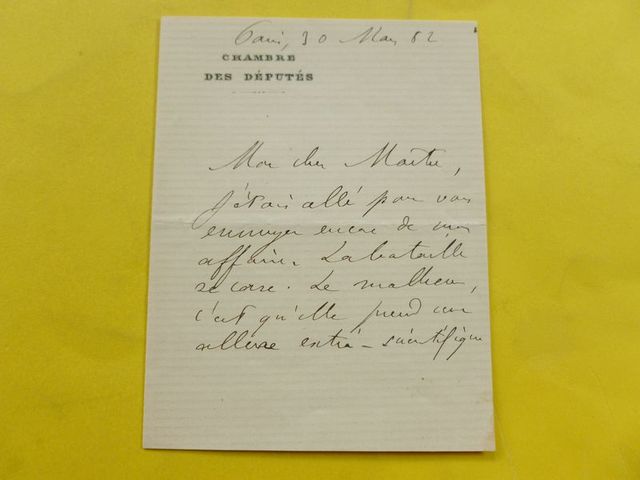 Paris, 30 Mars 82
CHAMBRE
DES DÉPUTÉS
Mon cher Maître,
J'étais allé pour vous
ennuyer encore de mon
affaire. La bataille
se corse. Le malheur,
c'est qu'elle prend une
allure extra-scientifique